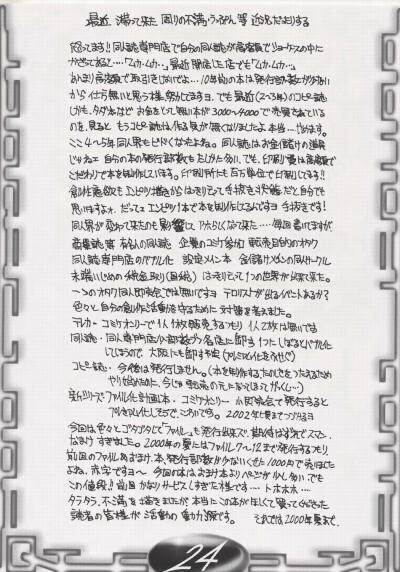 最近 滞って来た 周りの不満・うっぷん等 近況たよりする
怒ってます!! 同人誌専門店で自分の同人誌が高額でショーケースの中に
かざってある…"ムカムカ…" 最近 閉店した店でも"ムカムカ…"
あまり高額で取引をしないでよ… 10年前の本は発行部数が少ない
から仕方無いと思う様 努力してますヨ。でも最近(2〜3年)のコピー誌
しかも、タダ本など お金をとって無い本が3000〜4000で売買されている
のを見ると もうコピー誌は作る気が無くなりましたよ 本当…やめます。
ここ4〜5年同人界もヒドくなったよね。同人誌はお金儲けの道具
じゃねェ 自分の本の発行部数も たしかに少ない、でも、印刷費は高額で
こだわりで本を制作しています。
創作意欲も エンピツ描きからはっきり言って手抜き状態だと自分でも
思いますよォ。だってェ エンピツ1本で本を制作してるんですヨ 手抜きです!
同人界が変わって来たのも影響して アホらしくなって来た……毎回書いてますが、
商業誌等 有名人の同人誌 企業のコミケ参加 転売目的のオタク
同人誌専門店のバブル化 設定メン本 金儲けメインの同人サークル
末端いじめの税金取り(国税) はっきり言って1つの世界が出来て来た。
一つのオタク同人即売会では無いですヨ テロリストが出るイベントあるか?
色々と自分の創作活動を守るために対策を考えました。
テレカ・コミケオンリーで1人1枚販売するつもり 1人2枚は無いでは
同人誌・同人専門店
にしようので、大阪にも卸す予定(プレミア化をふせぐ)
コピー誌・今後は発行しません。(本を制作するたのしさをつたえるため
やり始めたのに、今じゃ転売の元になってしまってがっくし…)
新シリーズ・ファイル化計画本・コミケオンリー 小即売会で発行すると
プレミア化しそうで、こわいですヨ。2002年七夏までつづけるヨ
今回は色々とゴタゴタして「ファイル」も発行出来ず 期待はずれでスマン、
なまけすぎました。2000年の夏にはファイル7〜12まで発行するつもり
前回のファイルもおまけ、本、発行部数が少ないくせに1000円で売りました
よね。赤字ですヨ〜 今回の本はおまけ本よりページが少し多い でも
この値段!! 前回 かなりサービスしすぎた様です…。トホホホ…
タラタラ、不満を描きましたが 本当にこの本がほしくて買ってくださった
読者の皆様が活動の動力源です。 それでは2000年夏まで。
24